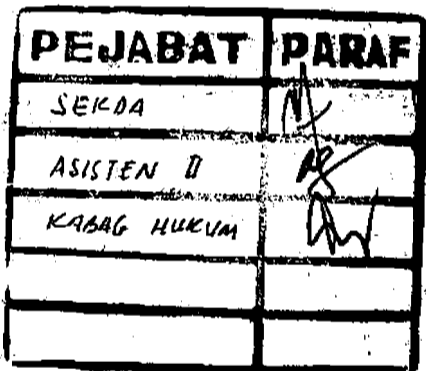 PEJABAT PARAF
SEKDA
ASISTEN II
KABAG HUKUM